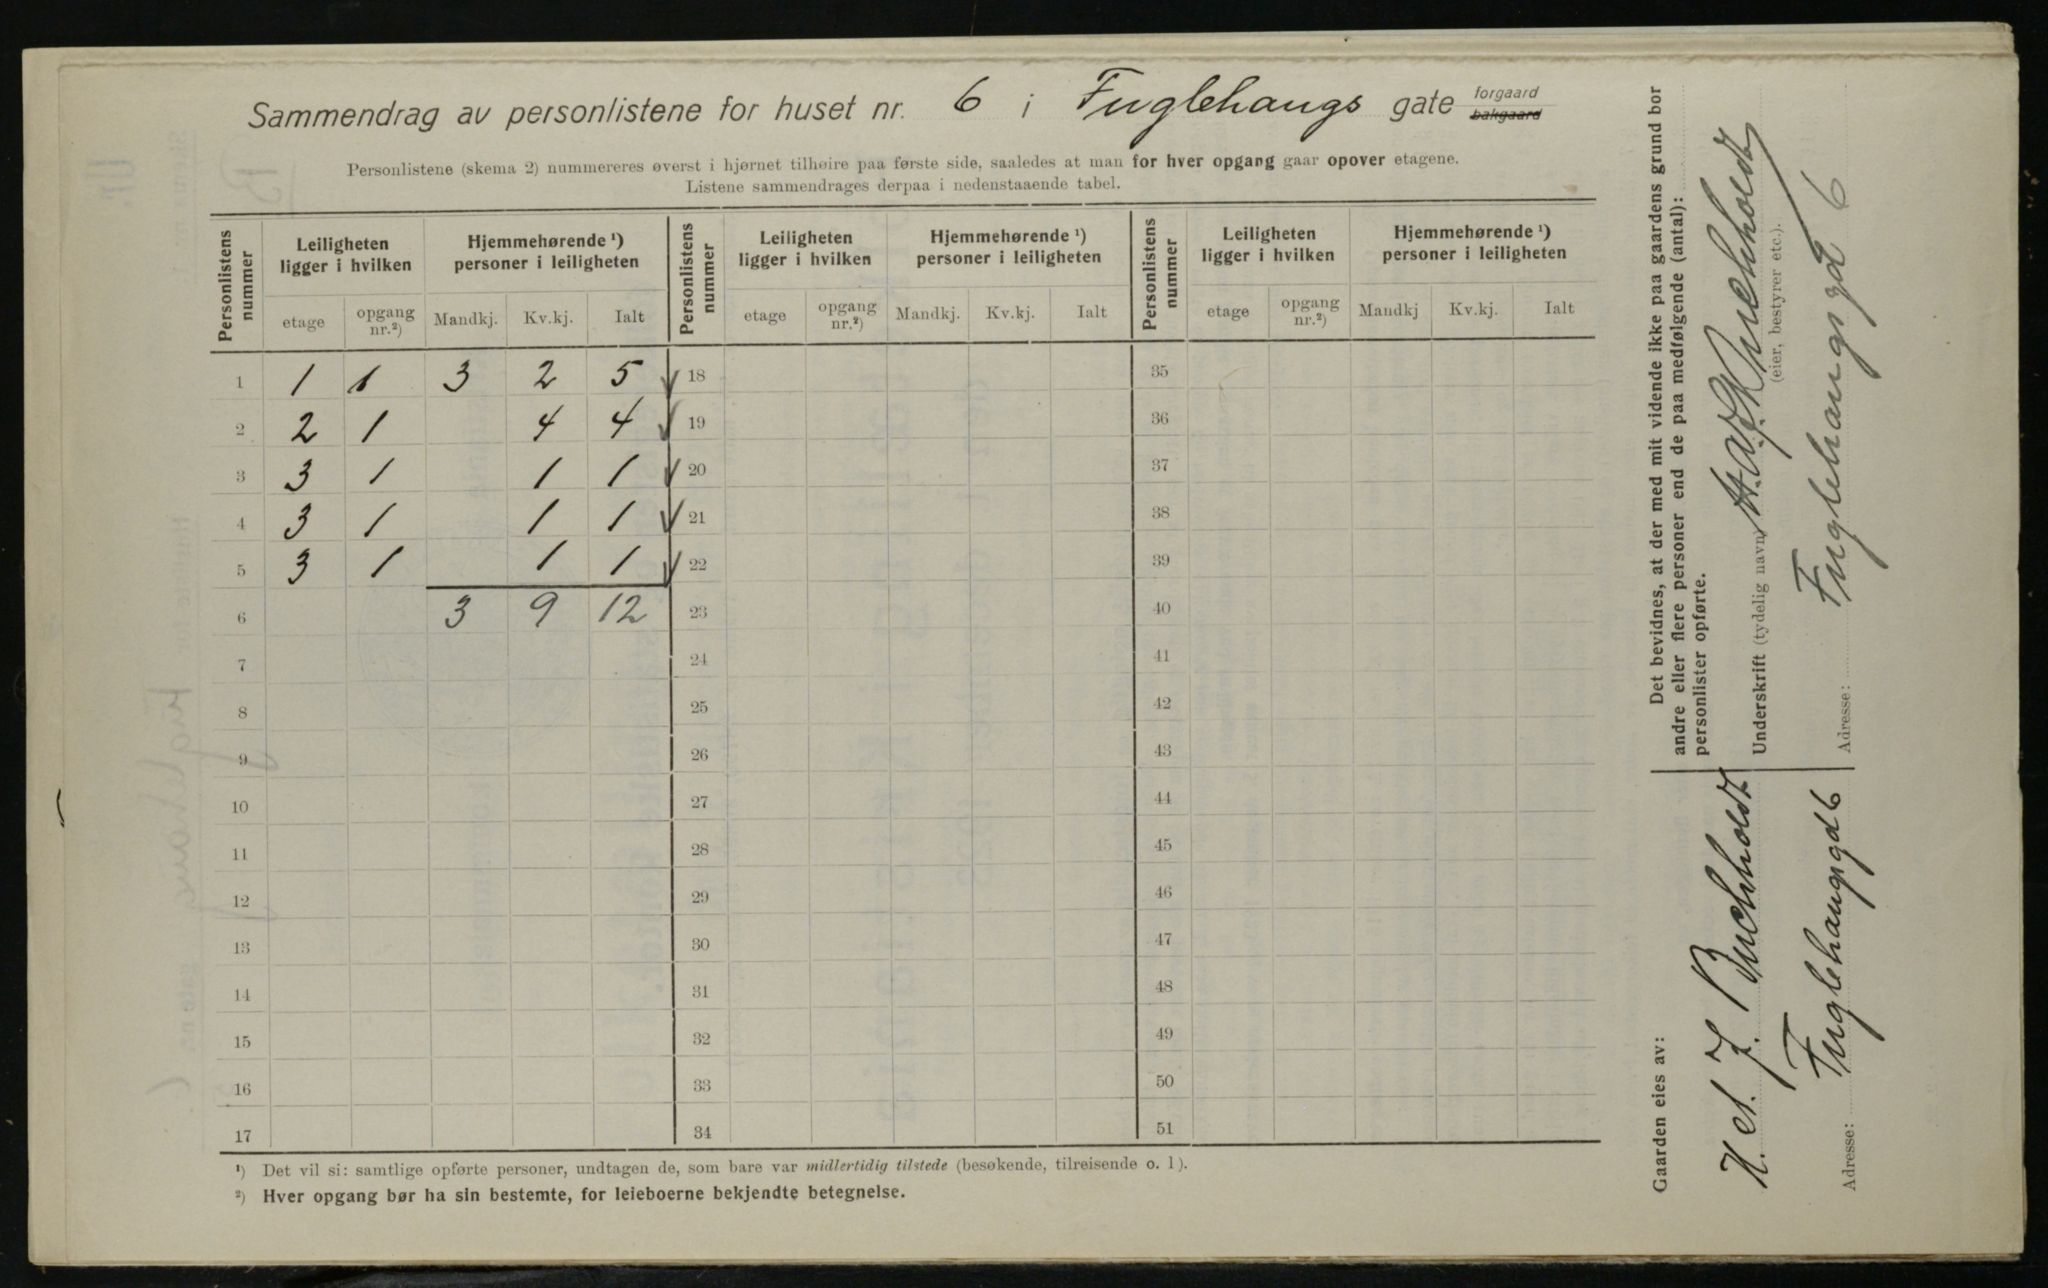 Sammendrag av personlistene for huset nr. 6 i Fuglehaugs gate forgaard bakgaard
Personlistene (skema 2) nummereres øverst i hjørnet tilhøire paa første side, saaledes at man for hver opgang gaar opover etagene.
Listene sammendrages derpaa i nedenstaaende tabel.
Personlistens nummer | Leiligheten ligger i hvilken | Hjemmehørende ¹) personer i leiligheten | Personlistens nummer | Leiligheten ligger i hvilken | Hjemmehørende ¹) personer i leiligheten | Personlistens nummer | Leiligheten ligger i hvilken | Hjemmehørende ¹) personer i leiligheten
etage | opgang nr.²) | Mandkj. | Kv.kj. | Ialt | etage | opgang nr.²) | Mandkj. | Kv.kj. | Ialt | etage | opgang nr.²) | Mandkj | Kv.kj. | Ialt
1 | 1 | 1 | 3 | 2 | 5 | 18 | 35
2 | 2 | 1 | 4 | 4 | 19 | 36
3 | 3 | 1 | 1 | 1 | 20 | 37
4 | 3 | 1 | 1 | 1 | 21 | 38
5 | 3 | 1 | 1 | 1 | 22 | 39
6 | 3 | 9 | 12 | 23 | 40
7 | 24 | 41
8 | 25 | 42
9 | 26 | 43
10 | 27 | 44
11 | 28 | 45
12 | 29 | 46
13 | 30 | 47
14 | 31 | 48
15 | 32 | 49
16 | 33 | 50
17 | 34 | 51
¹) Det vil si: samtlige opførte personer, undtagen de, som bare var midlertidig tilstede (besøkende, tilreisende o. l).
²) Hver opgang bør ha sin bestemte, for leieboerne bekjendte betegnelse.
Det bevidnes, at der med mit vidende ikke paa gaardens grund bor
andre eller flere personer end de paa medfølgende (antal):
personlister opførte.
Underskrift (tydelig navn) H. A. J. Buchholdt
(eier, bestyrer etc.).
Adresse: Fuglehaugs gd 6
Gaarden eies av:
H. A. J. Buchholdt
Adresse: Fuglehaugsgd 6